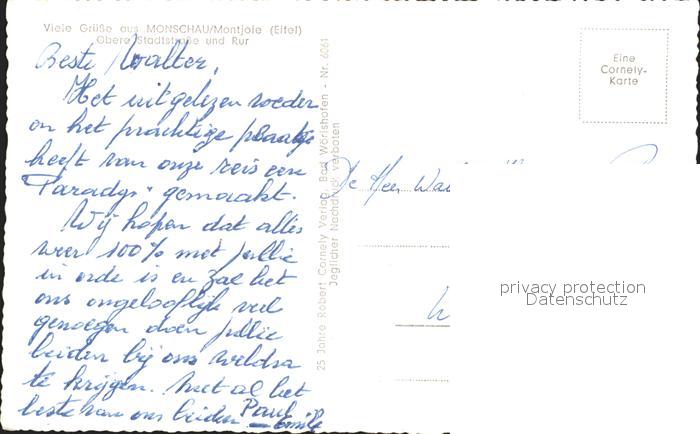 Viele Grüße aus MONSCHAU/Montjoie (Eifel)
Obere Stadtstraße und Rur
Beste Walter,
Het uitgelezen weder
en het prachtige plaatje
heeft van onze reis een
"Paradys" gemaakt.
Wij hopen dat alles
weer 100% met jullie
in orde is en zal het
ons ongelooflijk veel
genoegen doen jullie
beiden bij ons weldra
te krijgen. Met al het
beste van ons beiden Paul
Emile
25 Jahre Robert Cornely Verlag, Bad Wörishofen - Nr. 6061
Jeglicher Nachdruck verboten
Eine
Cornely-
Karte
De Heer Wal
privacy protection
Datenschutz